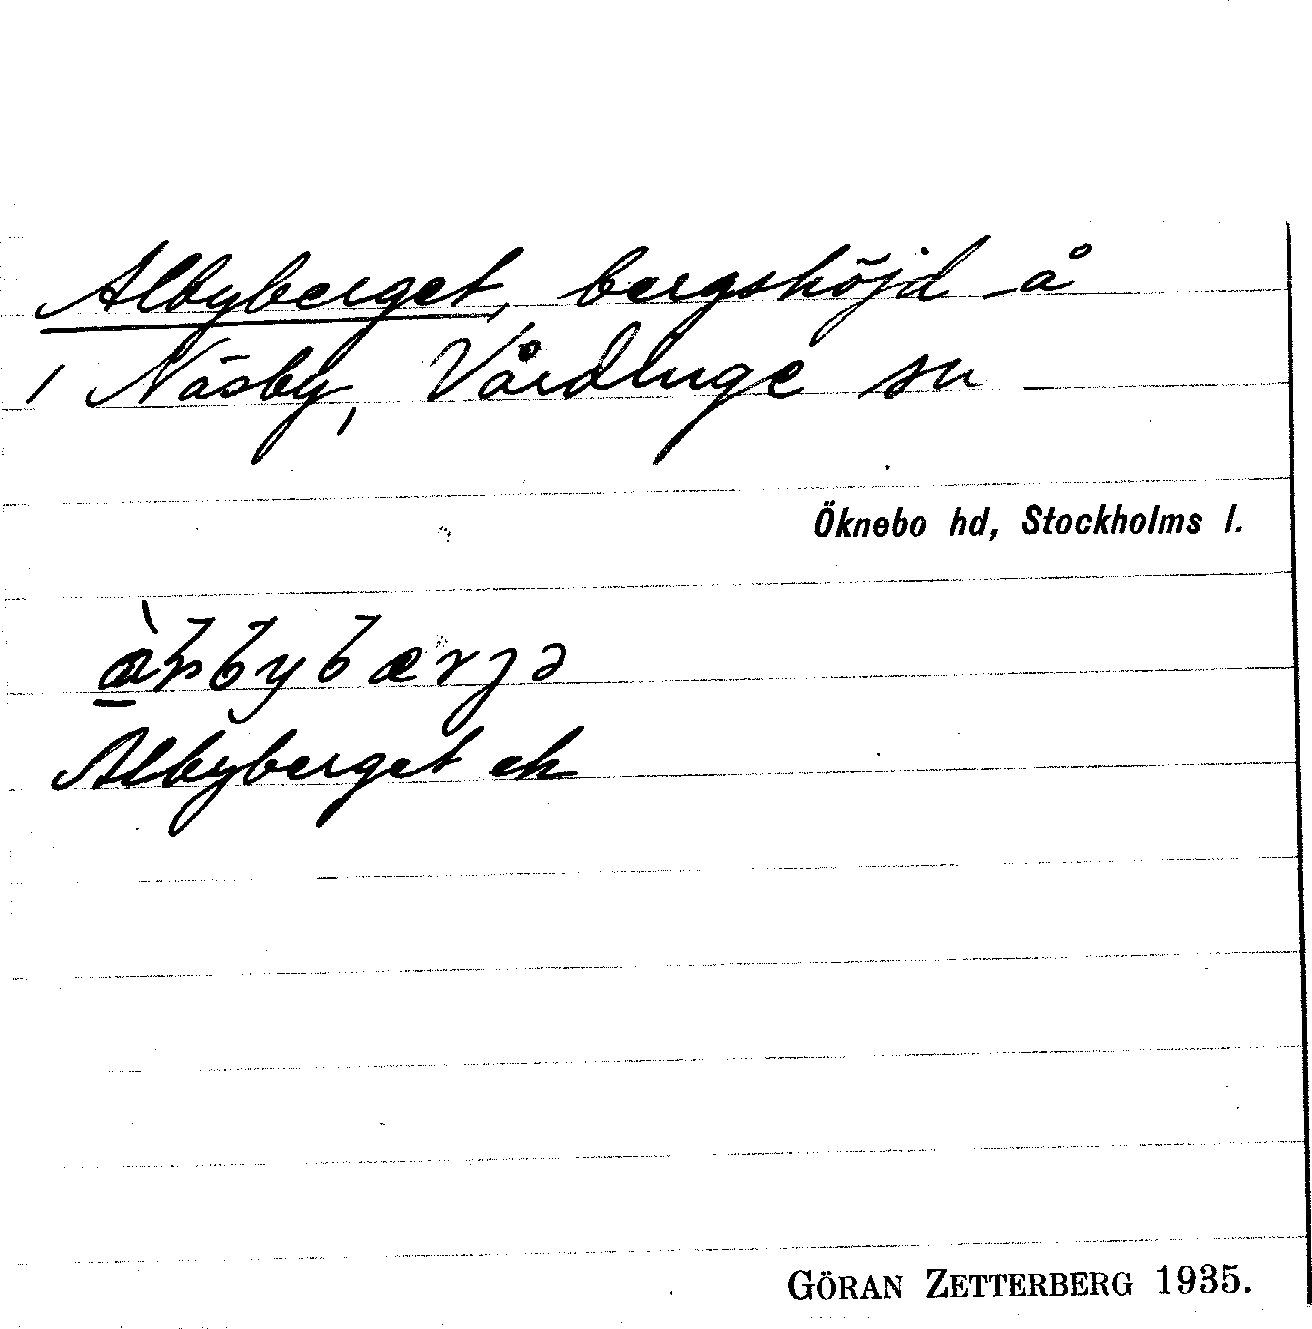 Albyberget, bergshöjd å
/ Näsby, Vårdinge sn
Öknebo hd, Stockholms l.
Albyberget ek
GÖRAN ZETTERBERG 1935.